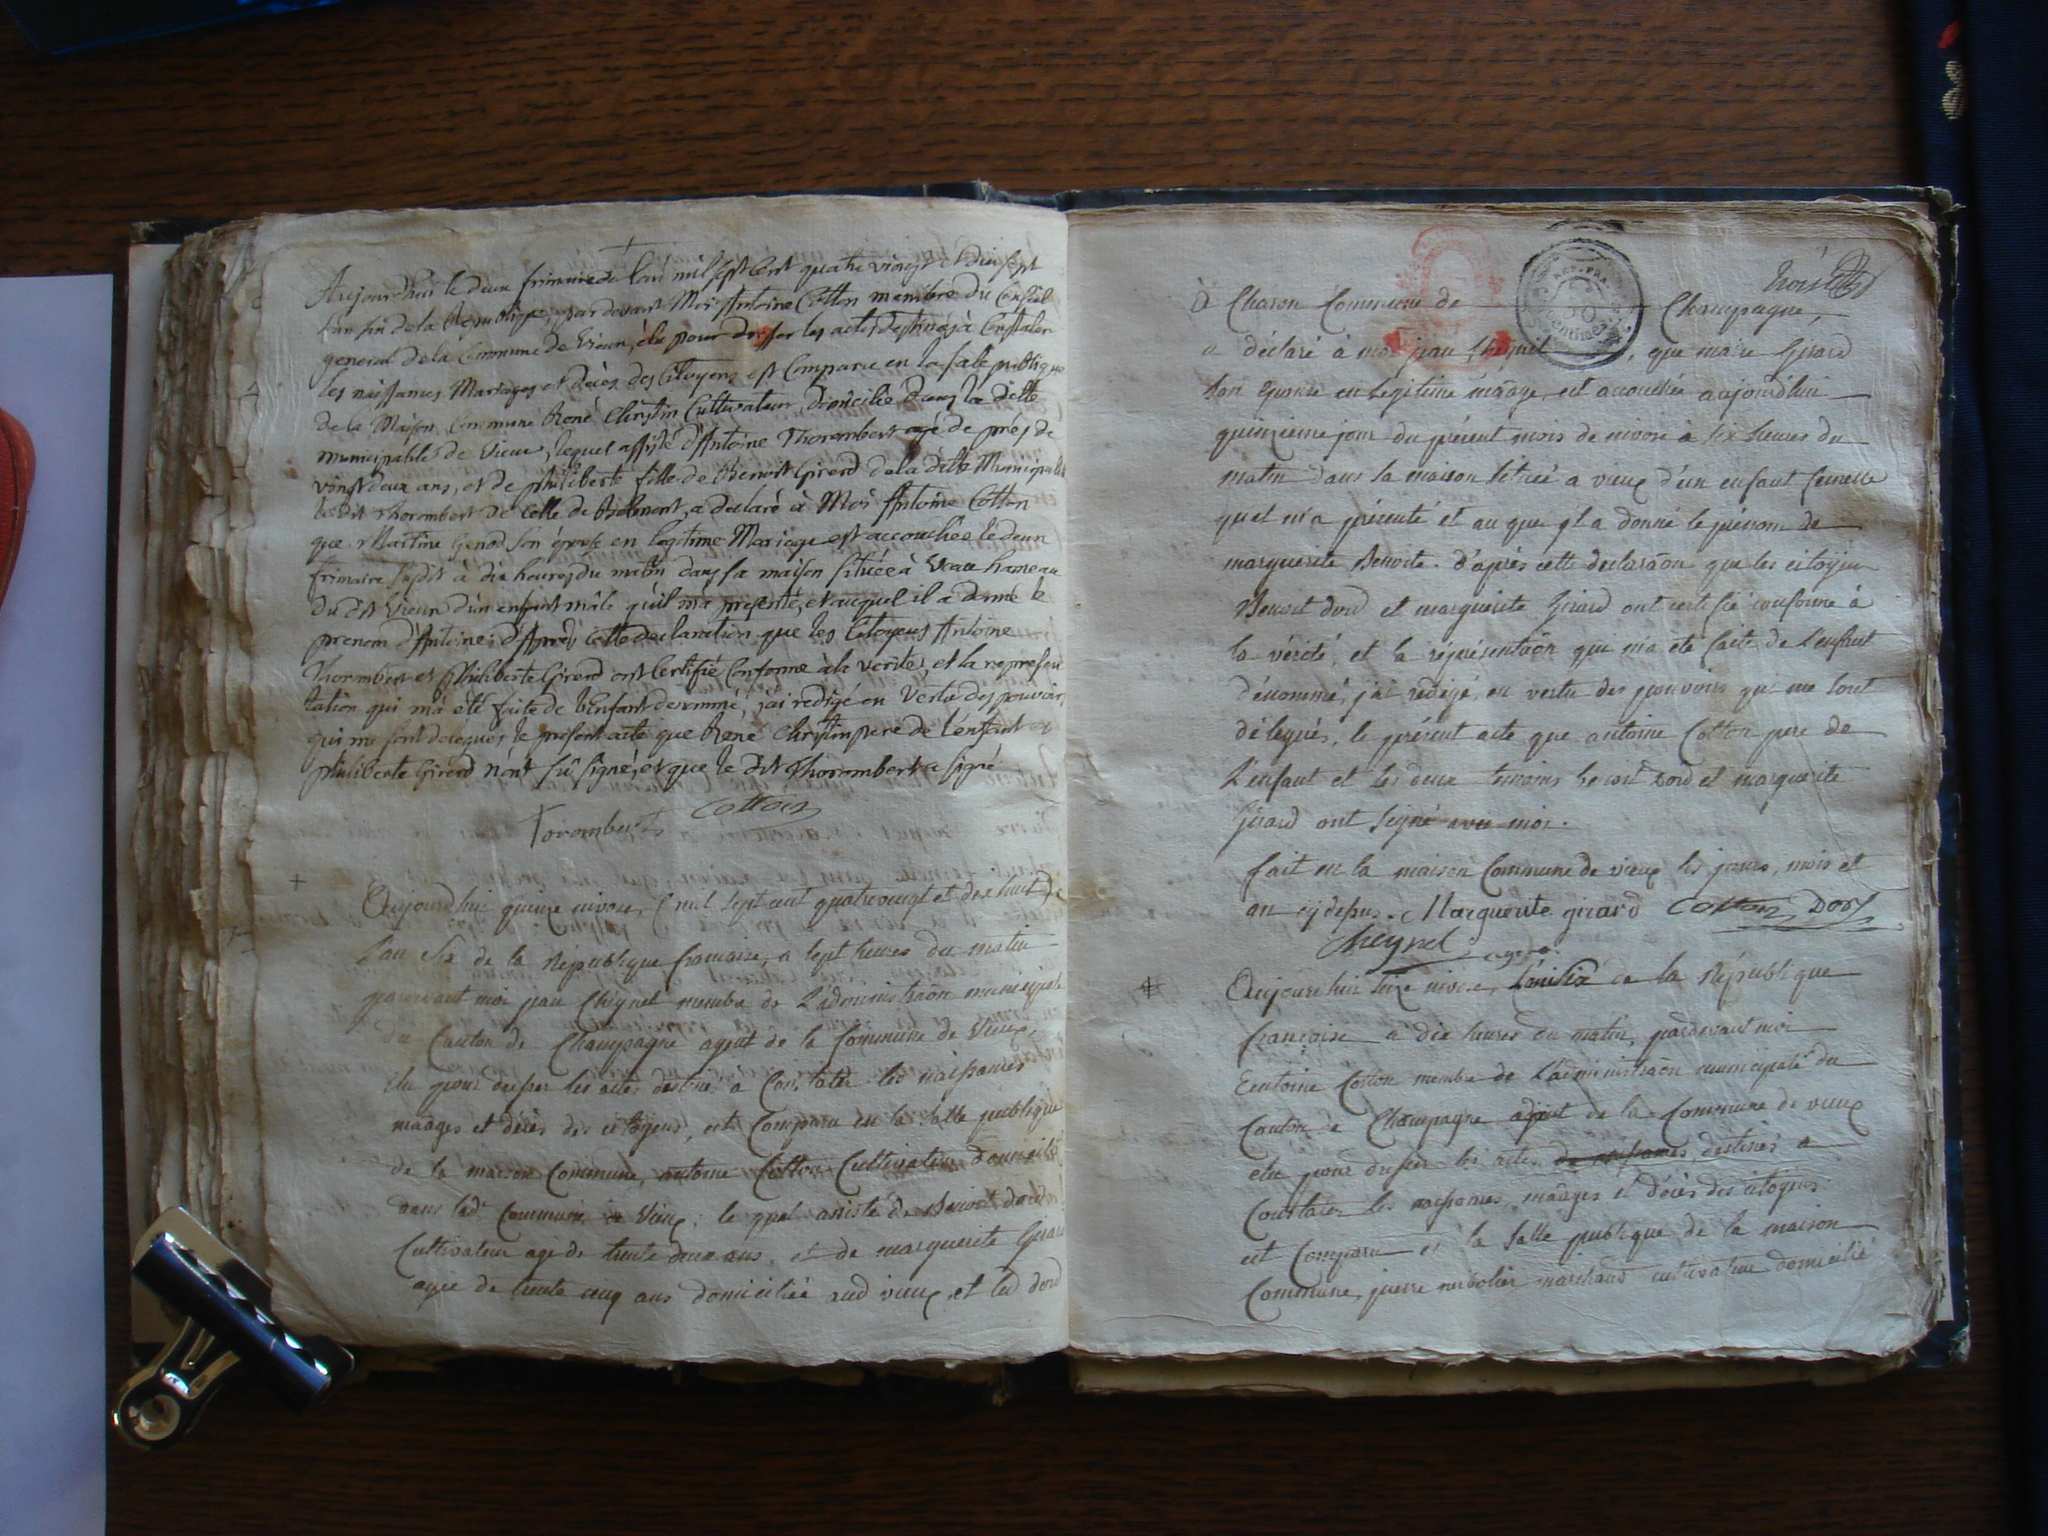 Aujourdhui le deux frimaire de l'an mil sept Cent quatre vingt et dix sept
L'an six de la République, par devant Moi Antoine Cotton membre du Conseil
general de la Commune de Vieun, élu pour dresser les actes destinés à Constater
les naissances Mariages et décès des Citoyens est Comparu en la salle publique
de la Maison Commune René Chrystin Cultivateur Domicilié dans la ditte
municipalité de Vieux, lequel assisté d'Antoine Thorombert agé de près de
vingt deux ans, et de philiberte fille de Benoit Girerd de la ditte Municipalité
le dit Thorombert de Celle de Belmont, a declaré à Moi Antoine Cotton
que Martine Genod son épouse en legitime Mariage est accouchée le deux
frimaire susdit à dix heures du matin dans sa maison située à Vaux hameau
Du dit Vieux d'un enfant mâle qu'il m'a presenté, et auquel il a donné le
prenom d'Antoine; d'Après Cette declaration que les Citoyens Antoine
Thorombert et philiberte Girerd ont Certifié Conforme à la verité, et la represen
tation qui m'a été faite de l'Enfant denommé, j'ai redigé en Vertu des pouvoirs
qui me sont delegués le present acte que René Chrystin pere de l'enfant et
philiberte Girerd n'ont sû signé, et que le dit Thorombert a signé
Torombert Cotton
Aujourdhuy quinze nivose, mil sept cent quatre vingt et dix huit
L'an Six de la République francaise, a sept heures du matin
pardevant moi jean Cheynel membre de L'administrãon municipale
du Canton de Champagne agent de la Commune de Vieux,
élu pour dresser les actes destinés a Constater les naissances
mãages et décès des citoyens, est Comparu en la salle publique
de la maison Commune, antoine Cotton Cultivateur domicilié
dans lad' Commune de Vieux; le quel assisté de Benoit dord
Cultivateur agé de trente deux ans, et de marguerite Girard
agée de trente cinq ans domiciliée aud vieux, et led dord
à Charon Commune de Champagne,
a déclaré à moi jean Cheynel, que marie Girard
son épouse en legitime mãage, est accouchée aujourdhui
quinzieme jour du présent mois de nivose à six heures du
matin dans la maison située a vieux d'un enfant femelle
quel m'a présenté et au que y'l a donné le prénom de
marguerite Benoite. d'après cette declarãon que les citoyens
Benoit dord et marguerite Girard ont certifié conforme à
la vérité, et la représentãon qui m'a été faite de L'enfant
dénommé, j'ai rédigé, en vertu des pouvoirs qui me sont
délégués, le présent acte que antoine Cotton pere de
L'enfant et les deux temoins benoit Dord et marguerite
Girard ont signé avec moi.
fait en la maison Commune de vieux les jours, mois et
an cy depus. Marguerite girard Cotton Dord
Cheynel agent
Aujourdhui seize nivose, L'an six de la République
françoise a dix heures du matin, pardevant moi
Antoine Cotton membre de L'administrãon municipale du
Canton de Champagne adjoint de la Commune de vieux
elu pour dresser les actes de naissances, destinés a
Constater les naissances, mãages et décès des citoyens
est Comparu en la salle publique de la maison
Commune, pierre marchand cultivateur domicilié